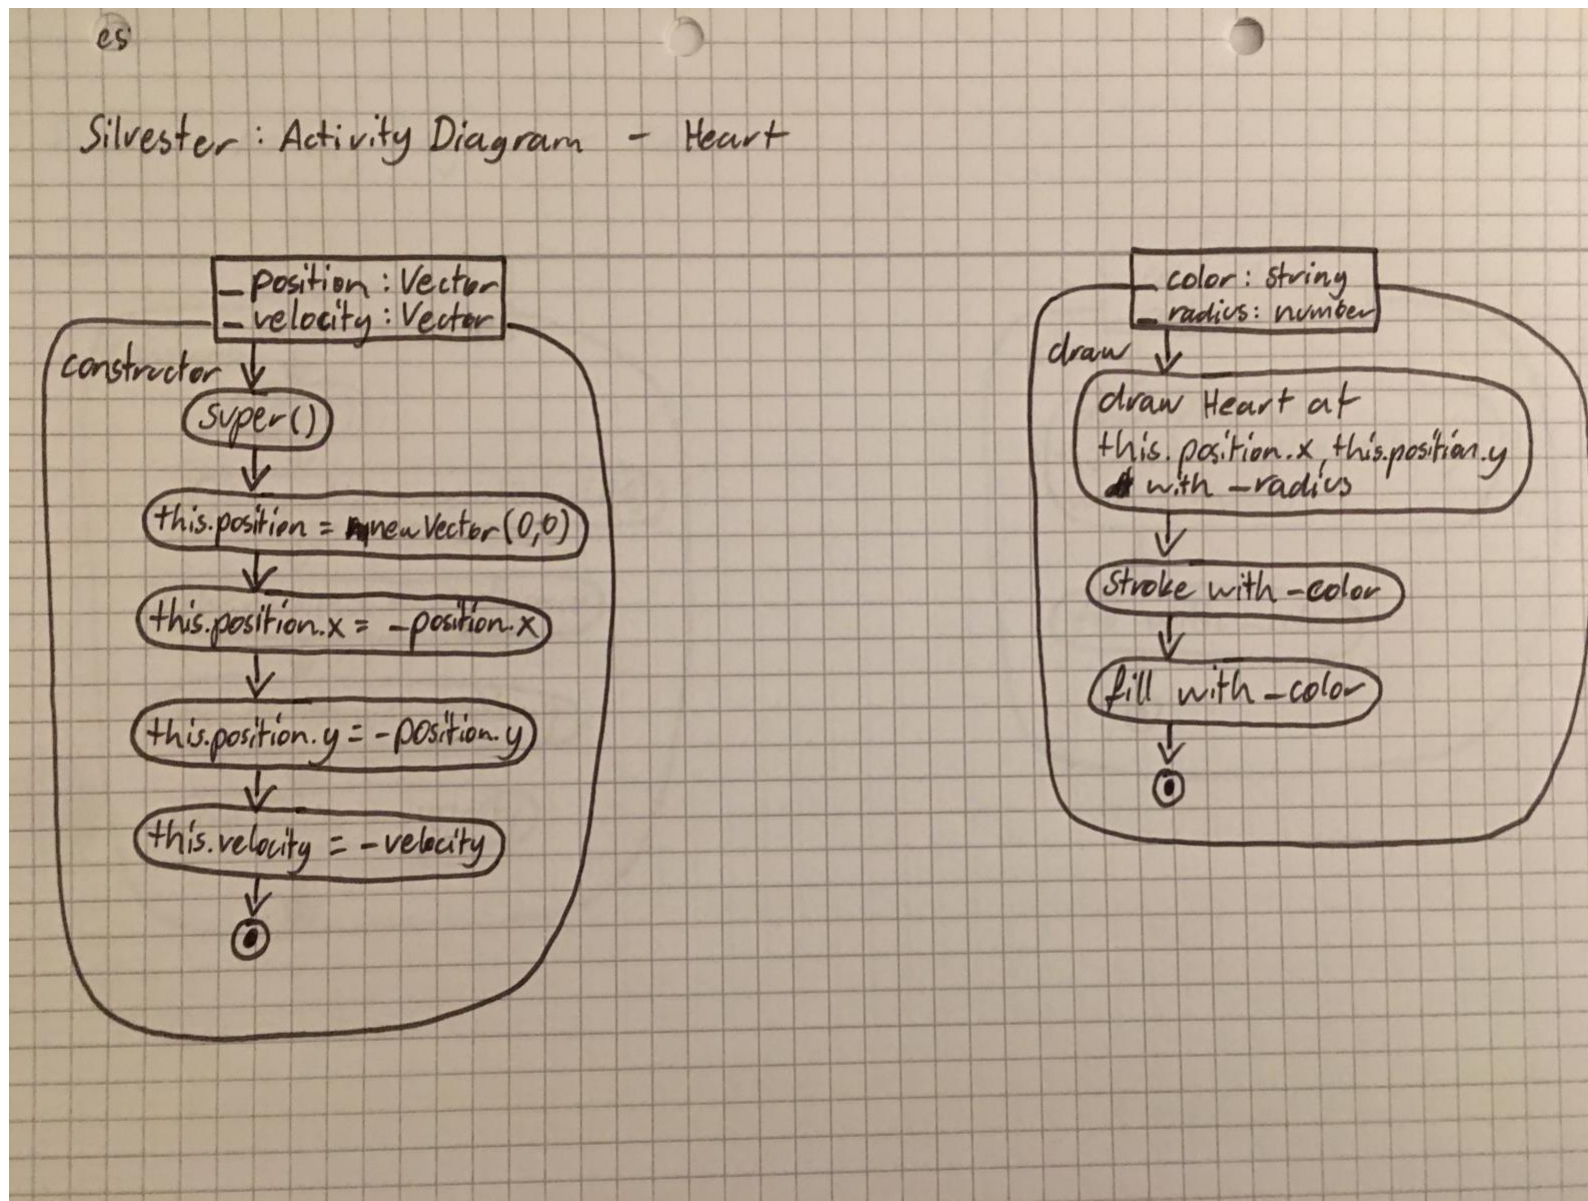 es
Silvester : Activity Diagram - Heart
_ position : Vector
_ velocity : Vector
constructor
super()
this.position = new Vector (0,0)
this.position.x = _position.x
this.position.y = _position.y
this.velocity = _velocity
_ color : string
_ radius : number
draw
draw Heart at
this.position.x, this.position.y
with _radius
stroke with _color
fill with _color